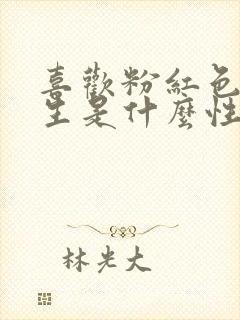 喜歡粉紅色
生是什麼性
林光大